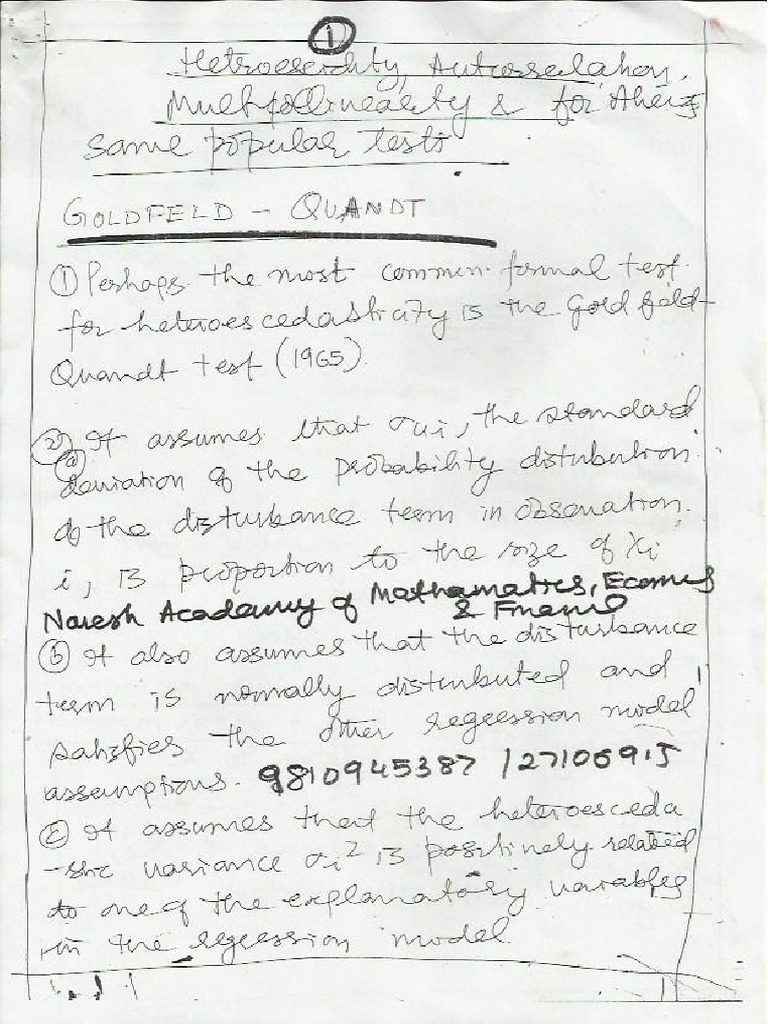 1
Hetroescidity, Autocorrelation,
Multicollinearity & for their
same popular tests
GOLDFELD - QUANDT
① Perhaps the most common formal test
for heteroescedasticity is the Gold feld-
Quandt test (1965)
② ⓐ It assumes that σui, the standard
deviation of the probability distribution
of the disturbance term in observation
i, is proportion to the size of Xi
Naresh Academy of Mathamatics, Ecomics
& Finance
ⓑ It also assumes that the disturbance
term is normally distributed and
satisfies the other regression model
assumptions. 9810945387 / 27106915
ⓒ It assumes that the heteroesceda
-stic variance σi² is positively related
to one of the explanatory variables
in the regression model